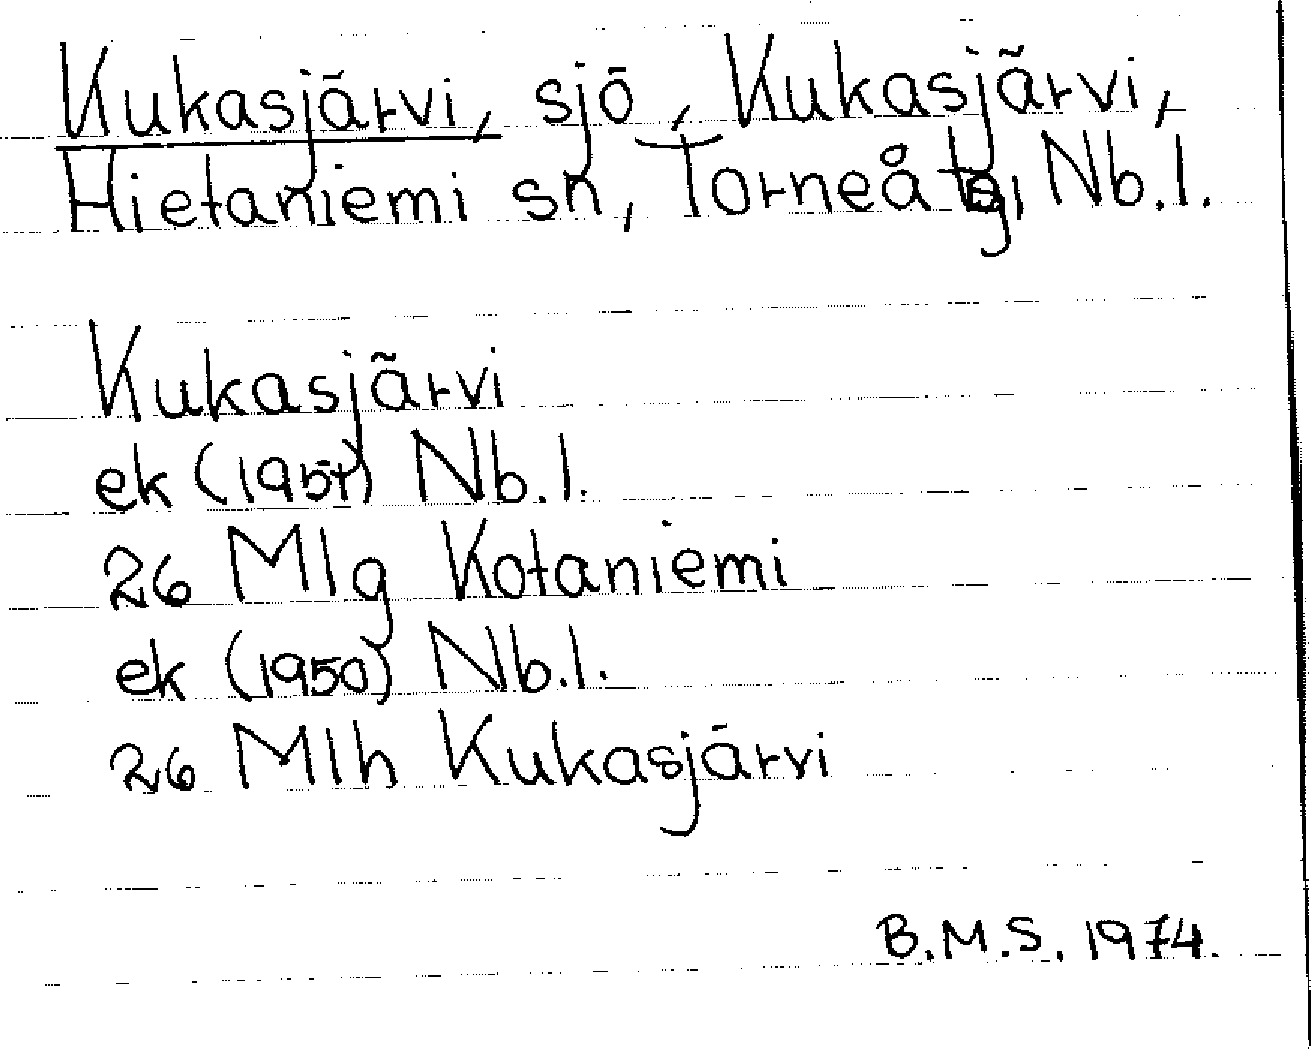 Kukasjärvi, sjö, Kukasjärvi,
Hietaniemi sn, Torneå tg, Nb.l.
Kukasjärvi
ek (1951) Nb.l.
26 Mlg Kotaniemi
ek (1950) Nb.l.
26 Mlh Kukasjärvi
B.M.S. 1974.